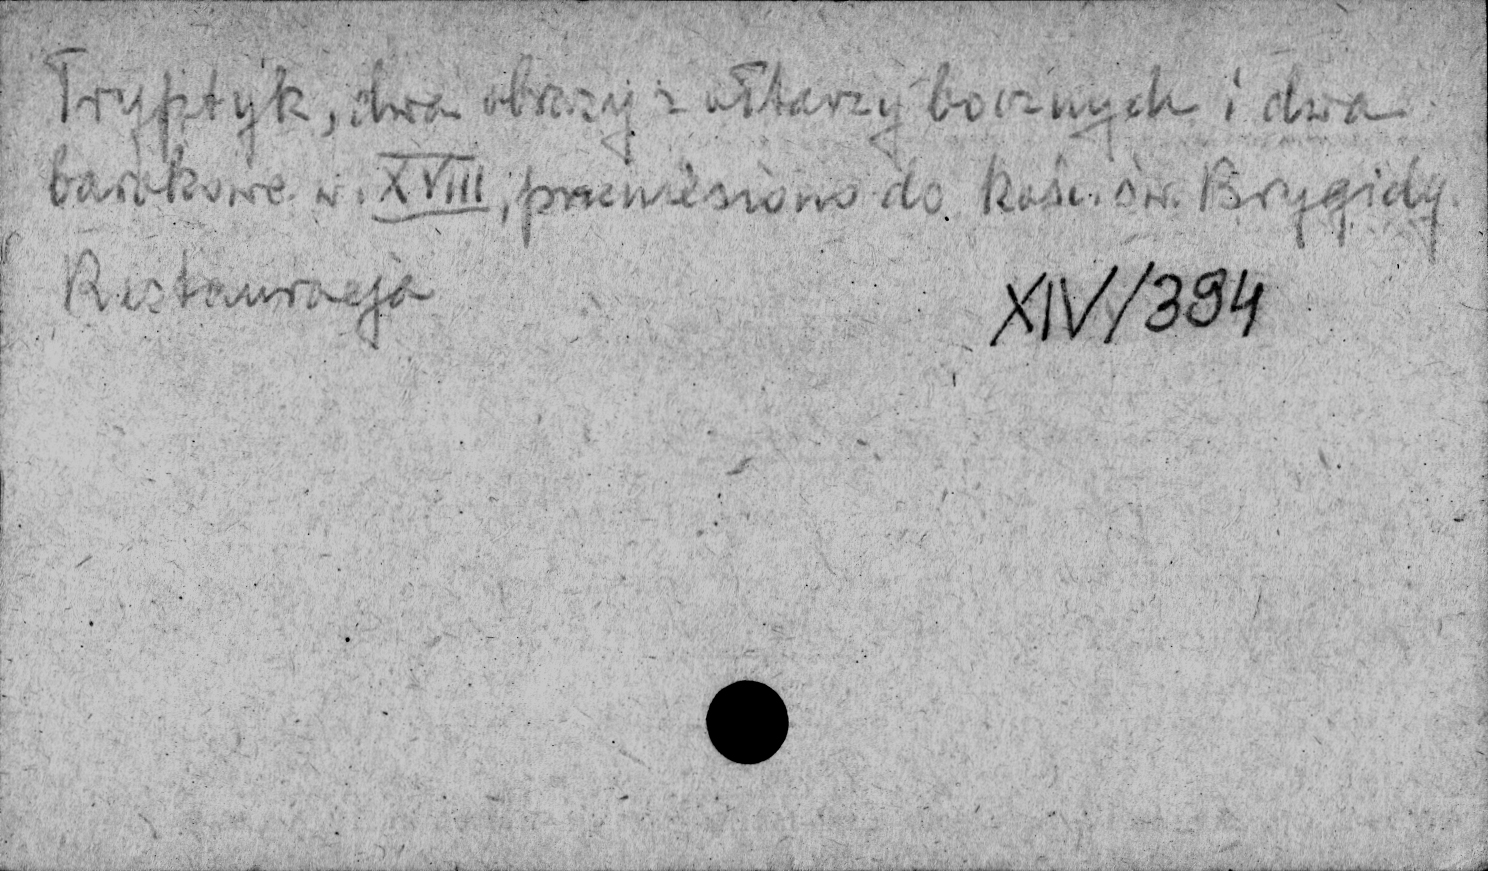 Tryptyk, dwa obrazy z ołtarzy bocznych i dwa
barokowe w. XVIII, przeniesiono do kośc. św. Brygidy.
Restauracja
XIV/394